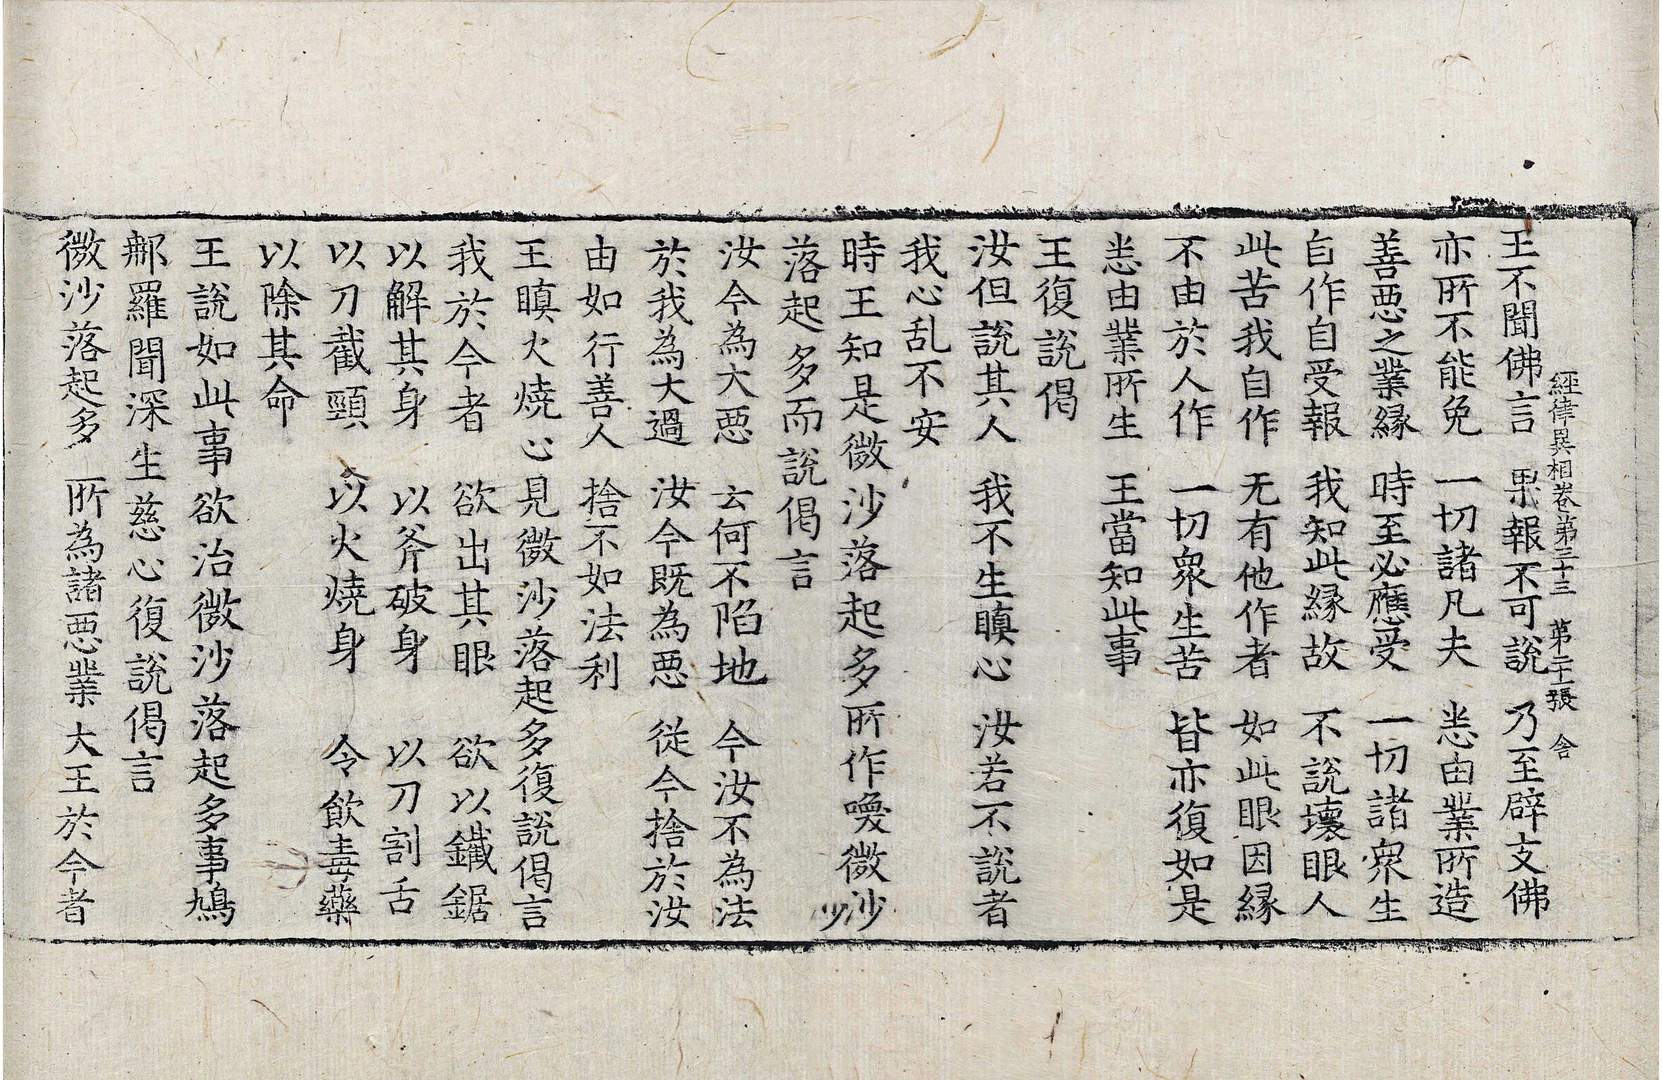 經律異相卷第三十三　第二十張　舍
王不聞佛言　果報不可說　乃至辟支佛
亦所不能免　一切諸凡夫　恙由業所造
善惡之業緣　時至必應受　一切諸衆生
自作自受報　我知此緣故　不說壞眼人
此苦我自作　无有他作者　如此眼因緣
不由於人作　一切衆生苦　皆亦復如是
恙由業所生　王當知此事
王復說偈
汝但說其人　我不生瞋心　汝若不說者
我心乱不安
時王知是微沙落起多所作喚微沙
落起多而說偈言
汝今為大惡　云何不陷地　今汝不為法
於我為大過　汝今既為惡　從今捨於汝
由如行善人　捨不如法利
王瞋火燒心見微沙落起多復說偈言
我於今者　欲出其眼　欲以鐵鋸
以解其身　以斧破身　以刀割舌
以刀截頸　以火燒身　令飲毒藥
以除其命
王說如此事欲治微沙落起多事鳩
那羅聞深生慈心復說偈言
微沙落起多　所為諸惡業　大王於今者